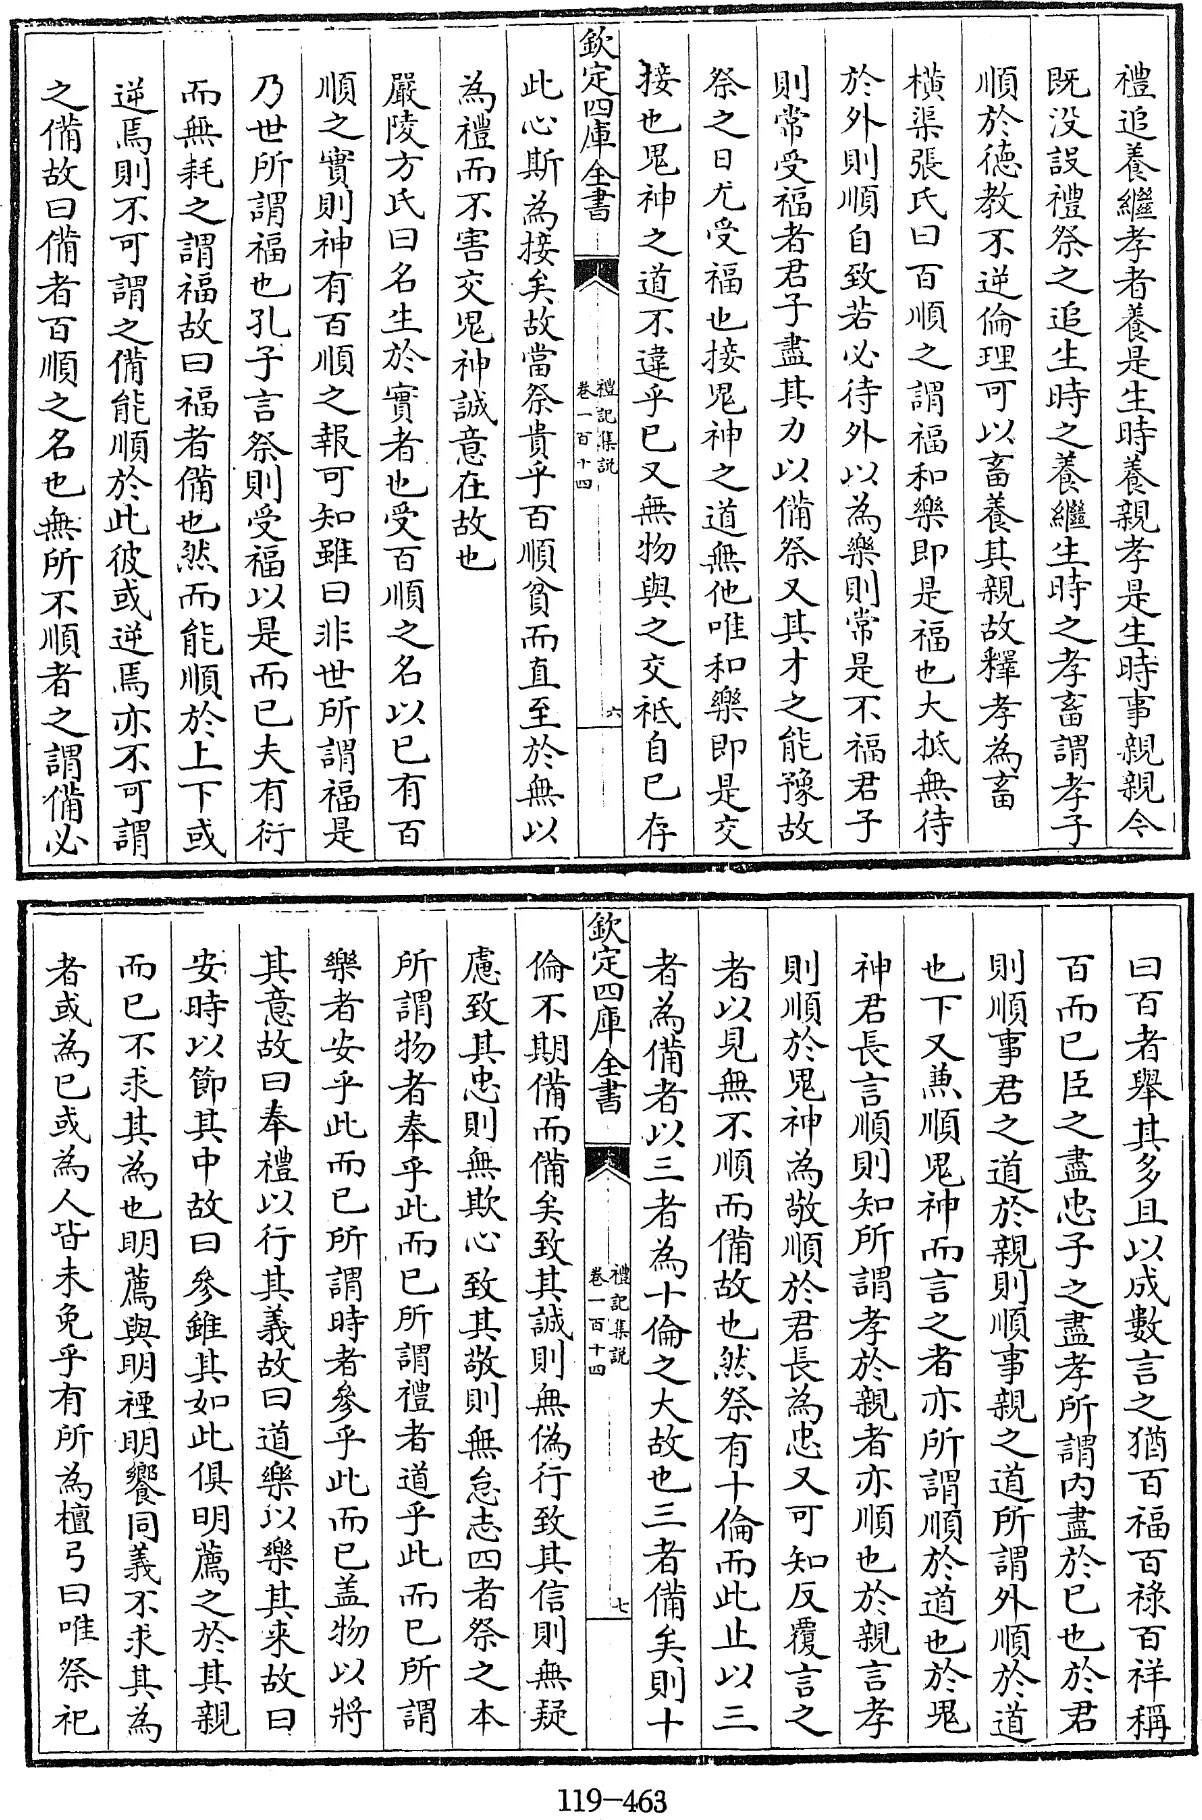 禮追養繼孝者養是生時養親孝是生時事親親今
既没設禮祭之追生時之養繼生時之孝畜謂孝子
順於徳教不逆倫理可以畜養其親故釋孝為畜
橫渠張氏曰百順之謂福和樂即是福也大抵無待
於外則順自致若必待外以為樂則常是不福君子
則常受福者君子盡其力以備祭又其才之能豫故
祭之日尤受福也接鬼神之道無他唯和樂即是交
接也鬼神之道不違乎已又無物與之交祗自已存
欽定四庫全書
禮記集説
卷一百十四
六
此心斯為接矣故當祭貴乎百順貧而直至於無以
為禮而不害交鬼神誠意在故也
嚴陵方氏曰名生於實者也受百順之名以已有百
順之實則神有百順之報可知雖曰非世所謂福是
乃世所謂福也孔子言祭則受福以是而已夫有衍
而無耗之謂福故曰福者備也然而能順於上下或
逆焉則不可謂之備能順於此彼或逆焉亦不可謂
之備故曰備者百順之名也無所不順者之謂備必
曰百者舉其多且以成數言之猶百福百祿百祥稱
百而已臣之盡忠子之盡孝所謂内盡於已也於君
則順事君之道於親則順事親之道所謂外順於道
也下又兼順鬼神而言之者亦所謂順於道也於鬼
神君長言順則知所謂孝於親者亦順也於親言孝
則順於鬼神為敬順於君長為忠又可知反覆言之
者以見無不順而備故也然祭有十倫而此止以三
者為備者以三者為十倫之大故也三者備矣則十
欽定四庫全書
禮記集説
卷一百十四
七
倫不期備而備矣致其誠則無偽行致其信則無疑
慮致其忠則無欺心致其敬則無怠志四者祭之本
所謂物者奉乎此而已所謂禮者道乎此而已所謂
樂者安乎此而已所謂時者參乎此而已盖物以將
其意故曰奉禮以行其義故曰道樂以樂其来故曰
安時以節其中故曰參雖其如此俱明薦之於其親
而已不求其為也明薦與明禋明饗同義不求其為
者或為已或為人皆未免乎有所為檀弓曰唯祭祀
119-463